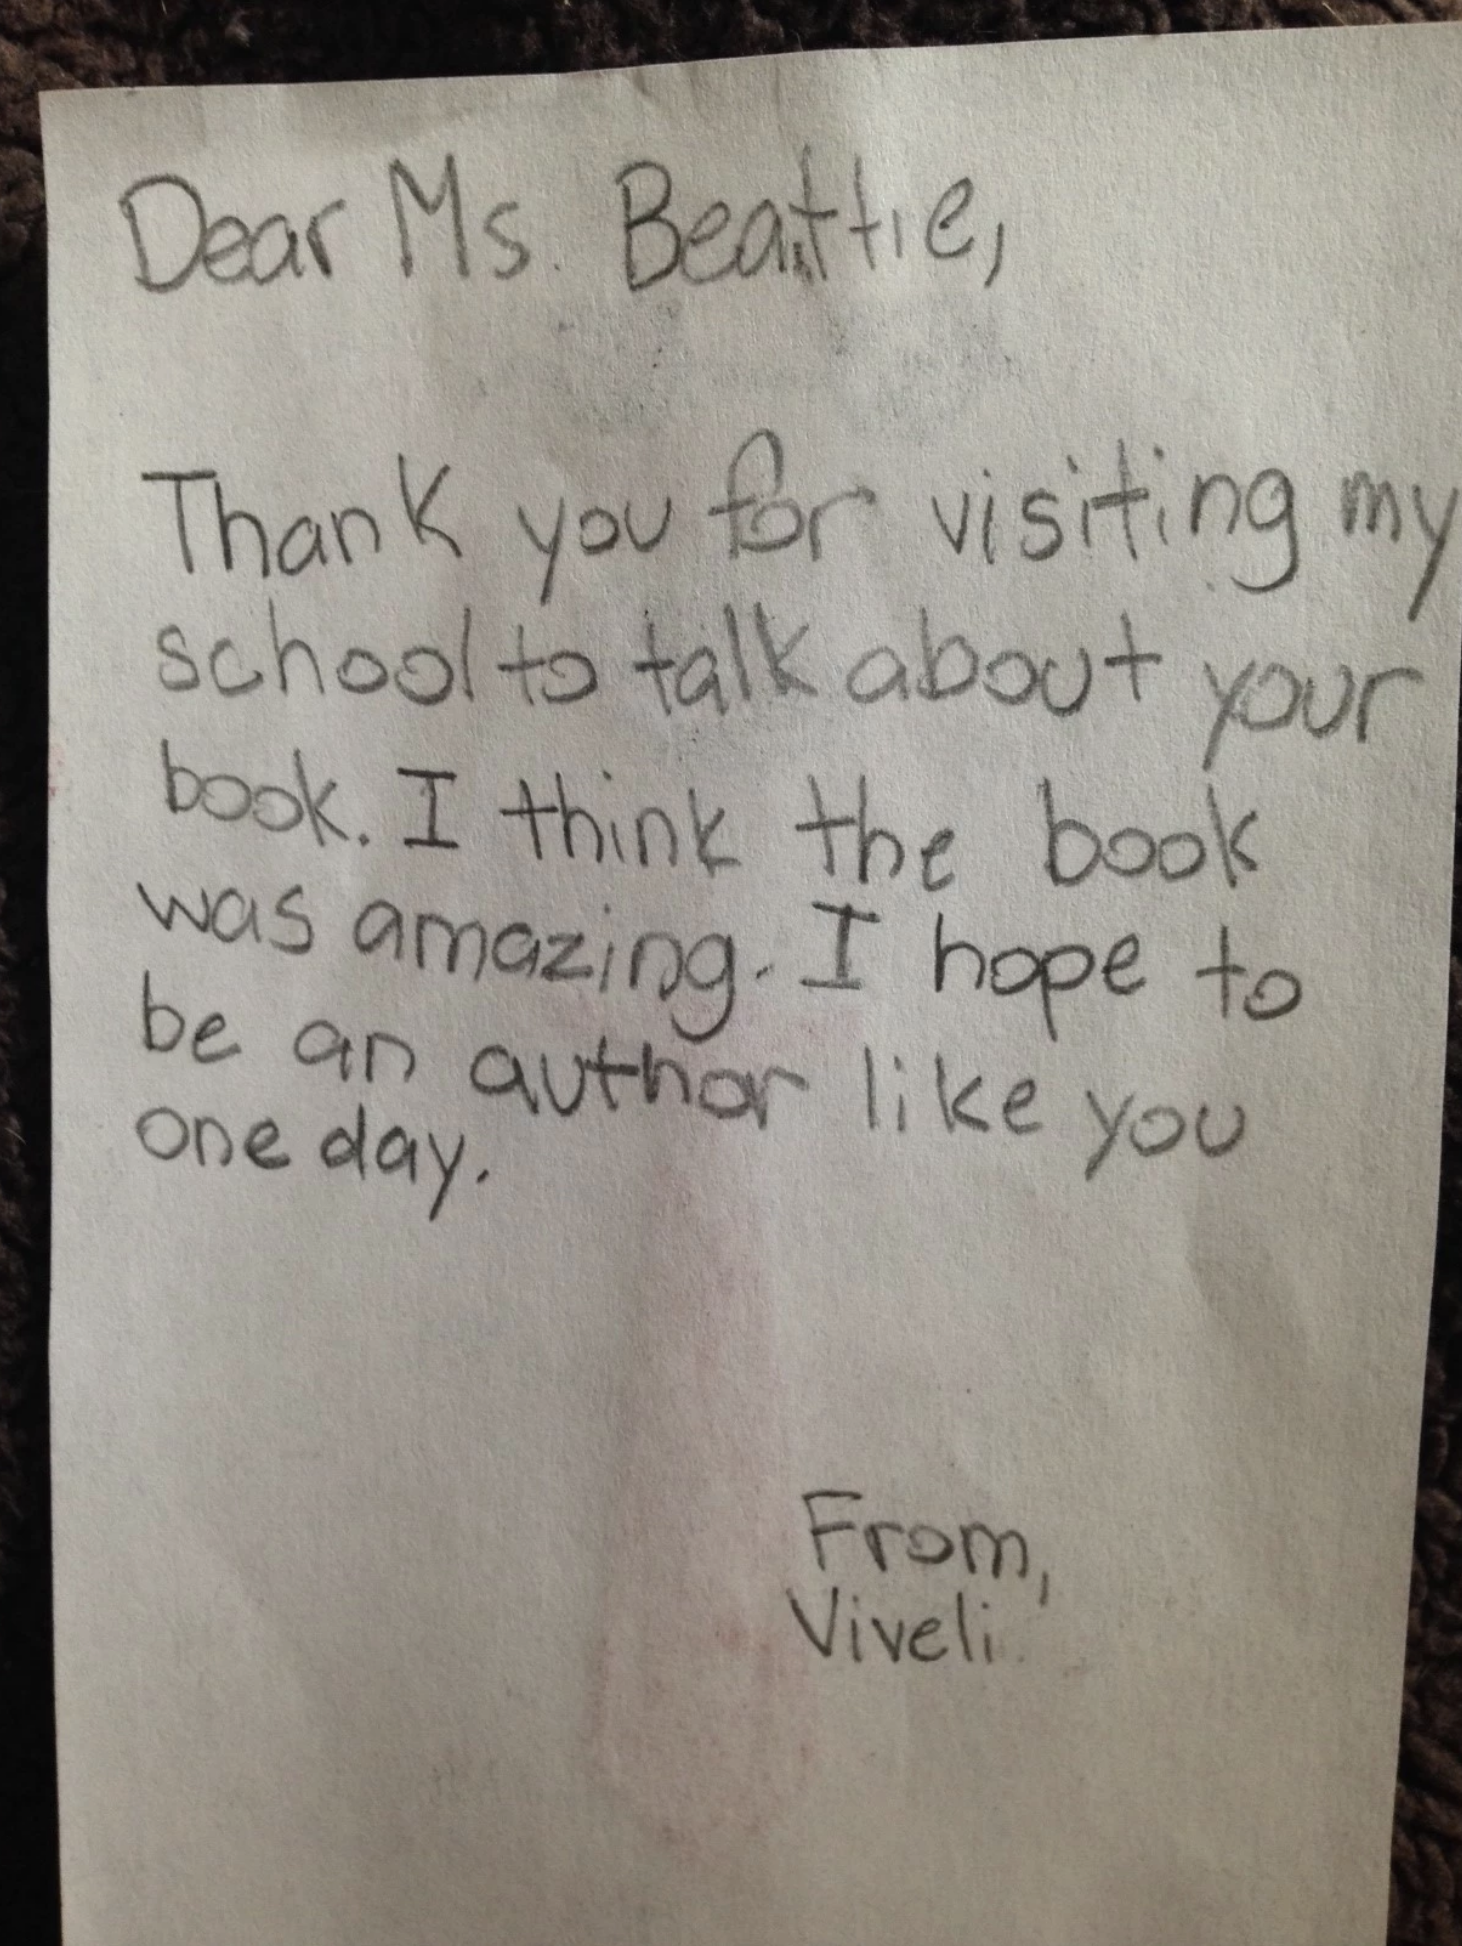 Dear Ms. Beattie,
Thank you for visiting my
school to talk about your
book. I think the book
was amazing. I hope to
be an author like you
one day.
From,
Viveli